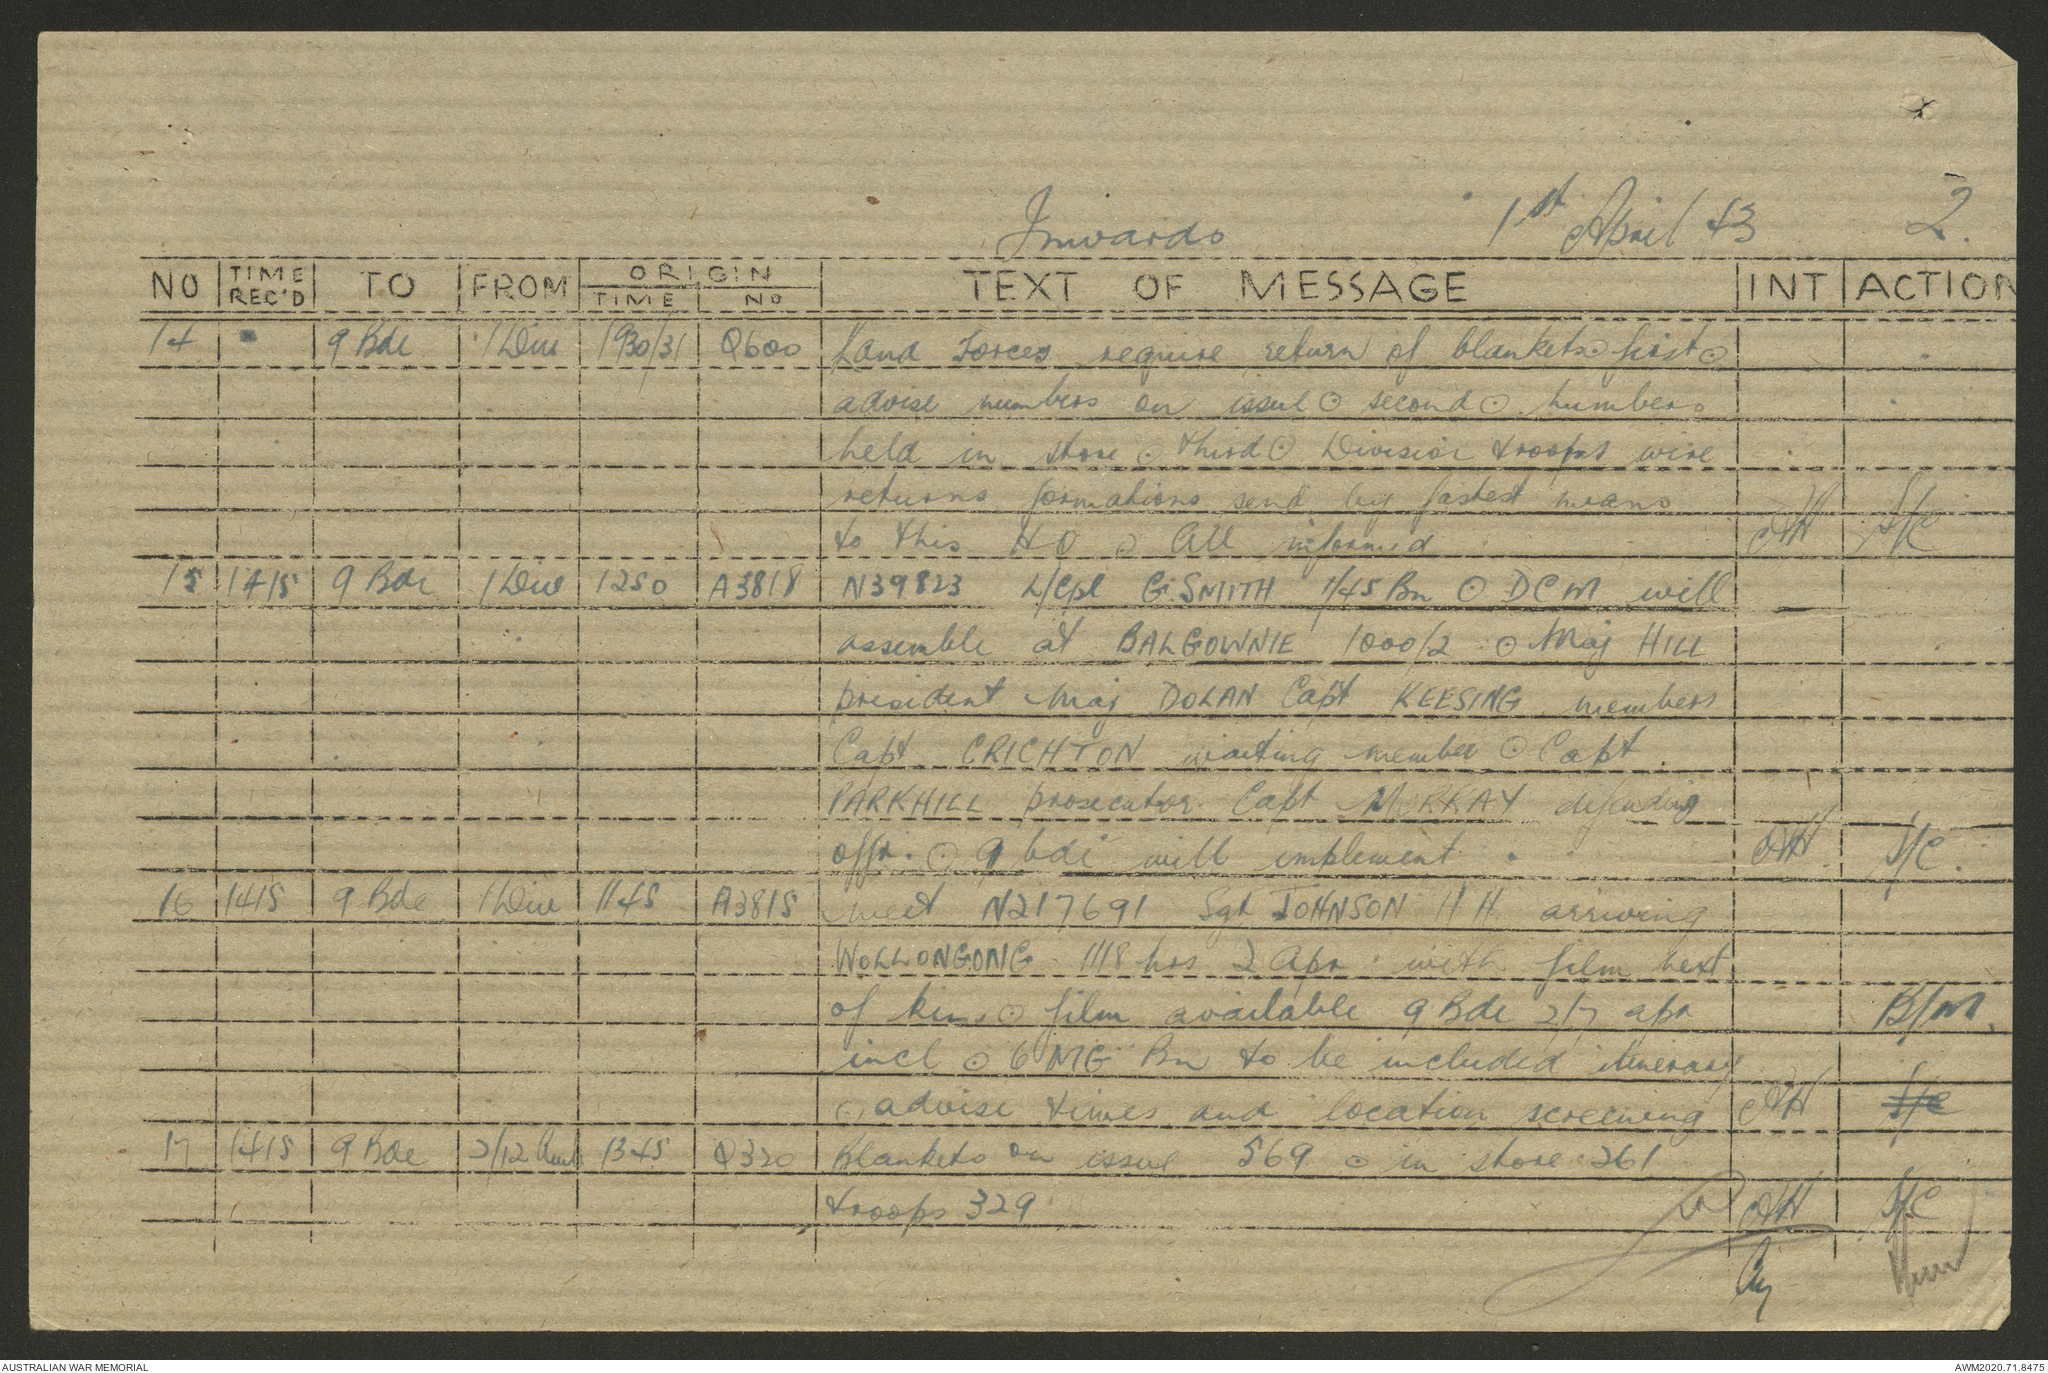 Inwards 1st April 43 2.
NO TIME REC'D TO FROM ORIGIN TIME NO TEXT OF MESSAGE INT ACTION
14 " 9 Bde 1 Div 1930/31 Q600 Land Forces require return of blankets ⊙ first ⊙
advise numbers on issue ⊙ second ⊙ numbers
held in store ⊙ third ⊙ Division troops wire
returns formations send by fastest means
to this HQ ⊙ All informed AH S/C
15 1415 9 Bde 1 Div 1250 A3818 N39823 L/Cpl G SMITH 1/45 Bn ⊙ DCM will
assemble at BALGOWNIE 1000/2 ⊙ Maj HILL
president Maj DOLAN Capt KEESING members
Capt CRICHTON waiting member ⊙ Capt
PARKHILL prosecutor Capt MURRAY defending
offr. ⊙ 9 bde will implement. AH S/C.
16 1415 9 Bde 1 Div 1145 A3815 meet N217691 Sgt JOHNSON H H arriving
WOLLONGONG 1118 hrs 2 Apr with film next
of kin ⊙ film available 9 Bde 2/7 apr B/M.
incl ⊙ 6 MG Bn to be included itinerary
⊙ advise times and location screening AH S/C
17 1415 9 Bde 2/12 1345 Q320 Blankets on issue 569 ⊙ in store 261
troops 329 AH S/C
AUSTRALIAN WAR MEMORIAL AWM2020.71.8475